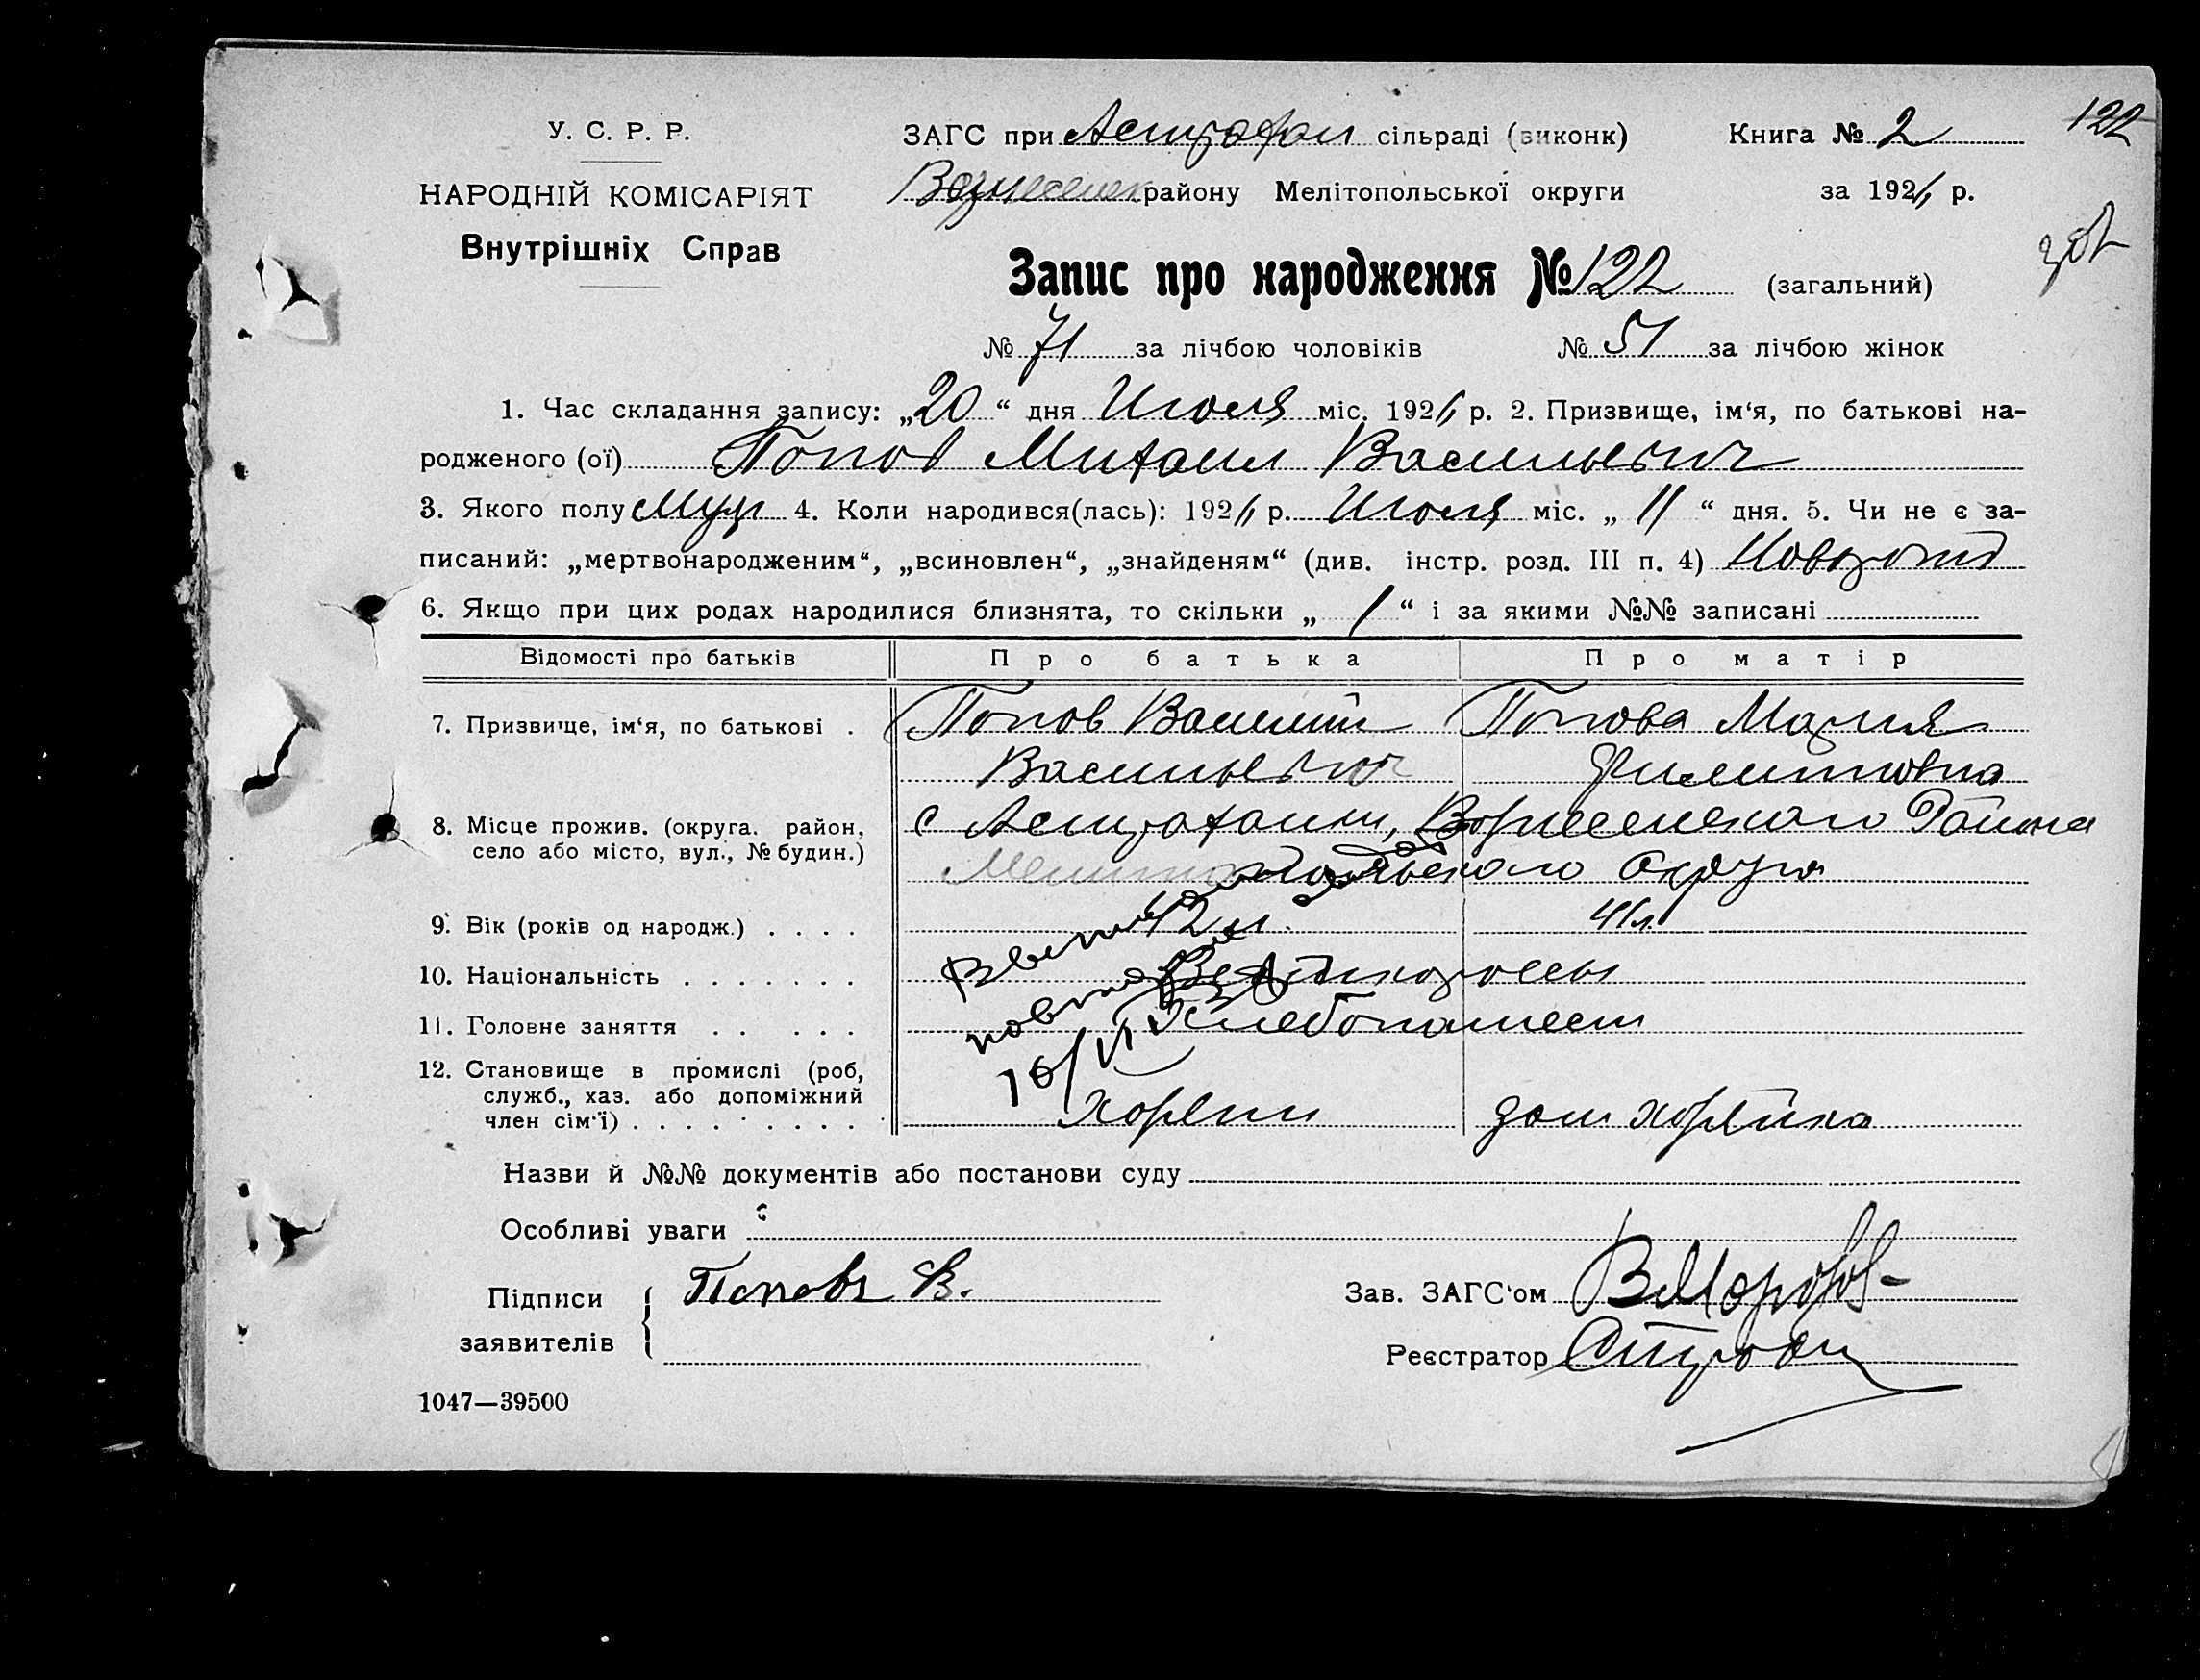 122
У. С. Р. Р.
ЗАГС при Астрахан сільраді (виконк) Книга № 2
НАРОДНІЙ КОМІСАРІЯТ
Вознесенк району Мелітопольської округи за 1926 р.
Внутрішніх Справ
Запис про народження № 122 (загальний)
№ 71 за лічбою чоловіків № 51 за лічбою жінок
1. Час складання запису: „20“ дня Июля міс. 1926 р. 2. Призвище, ім‘я, по батькові на-
родженого (ої) Попов Михаил Васильевич
3. Якого полу Муж 4. Коли народився(лась): 1926 р. Июля міс. „11“ дня. 5. Чи не є за-
писаний: „мертвонародженим“, „всиновлен“, „знайденям“ (див. інстр. розд. III п. 4)
6. Якщо при цих родах народилися близнята, то скільки „ / “ і за якими №№ записані
Відомості про батьків Про батька Про матір
7. Призвище, ім‘я, по батькові . Попов Василий Попова Мария
Васильевич Филипповна
8. Місце прожив. (округа. район, с Астраханки, Вознесенского Района
село або місто, вул., № будин.) Мелитопольского Округа
9. Вік (років од народж.) . . . . 42 л. 41 л.
10. Національність . . . . . . . Великороссы
11. Головне заняття . . . . . Хлебопашест
12. Становище в промислі (роб,
служб., хаз. або допоміжний
член сім‘ї) . . . . . . . . . Хозяин дом хозяйка
16/VII
Назви й №№ документів або постанови суду
Особливі уваги
Підписи заявителів Поповъ В.
Зав. ЗАГС‘ом В Морозов
Реєстратор
1047—39500